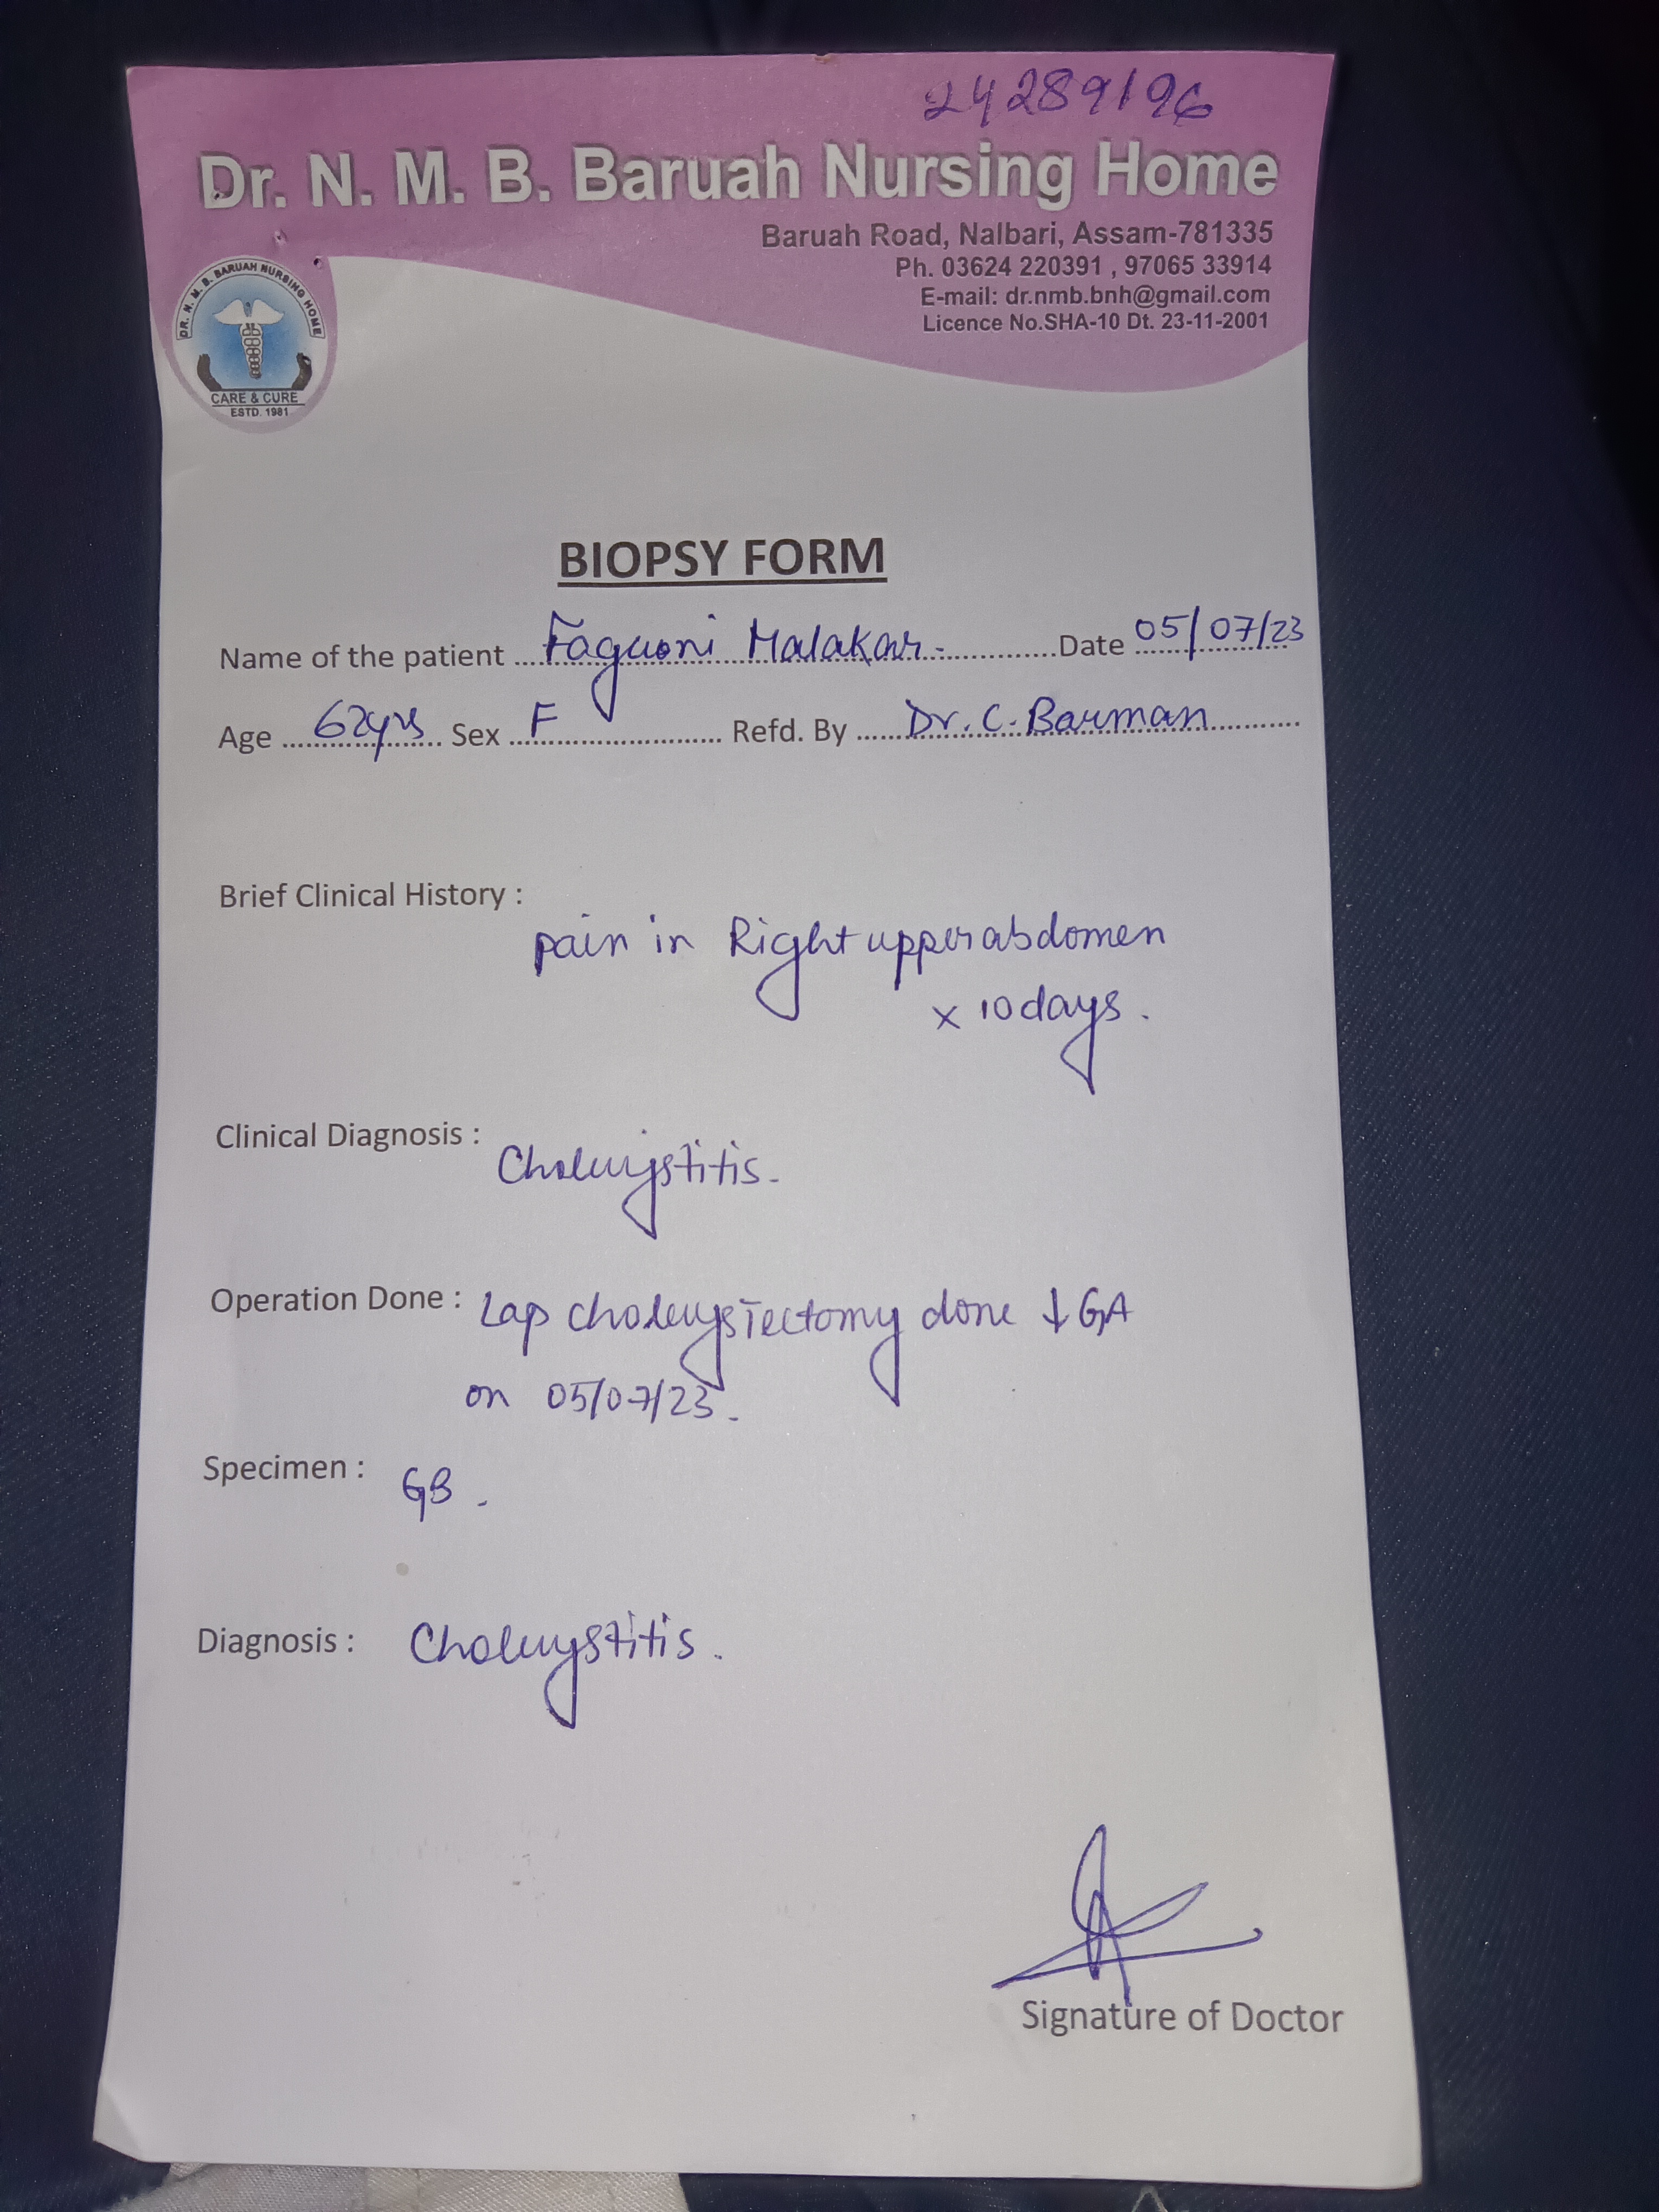 24289196
Dr. N. M. B. Baruah Nursing Home
Baruah Road, Nalbari, Assam-781335
Ph. 03624 220391 , 97065 33914
E-mail: dr.nmb.bnh@gmail.com
Licence No.SHA-10 Dt. 23-11-2001
DR. N. M. B. BARUAH NURSING HOME
CARE & CURE
ESTD. 1981
BIOPSY FORM
Name of the patient Faguoni Malakar. Date 05/07/23
Age 62yrs Sex F Refd. By Dr. C. Barman
Brief Clinical History :
pain in Right upper abdomen
x 10 days.
Clinical Diagnosis : Cholecystitis.
Operation Done : Lap cholecystectomy done ↓ GA
on 05/07/23.
Specimen : GB.
Diagnosis : Cholecystitis.
Signature of Doctor